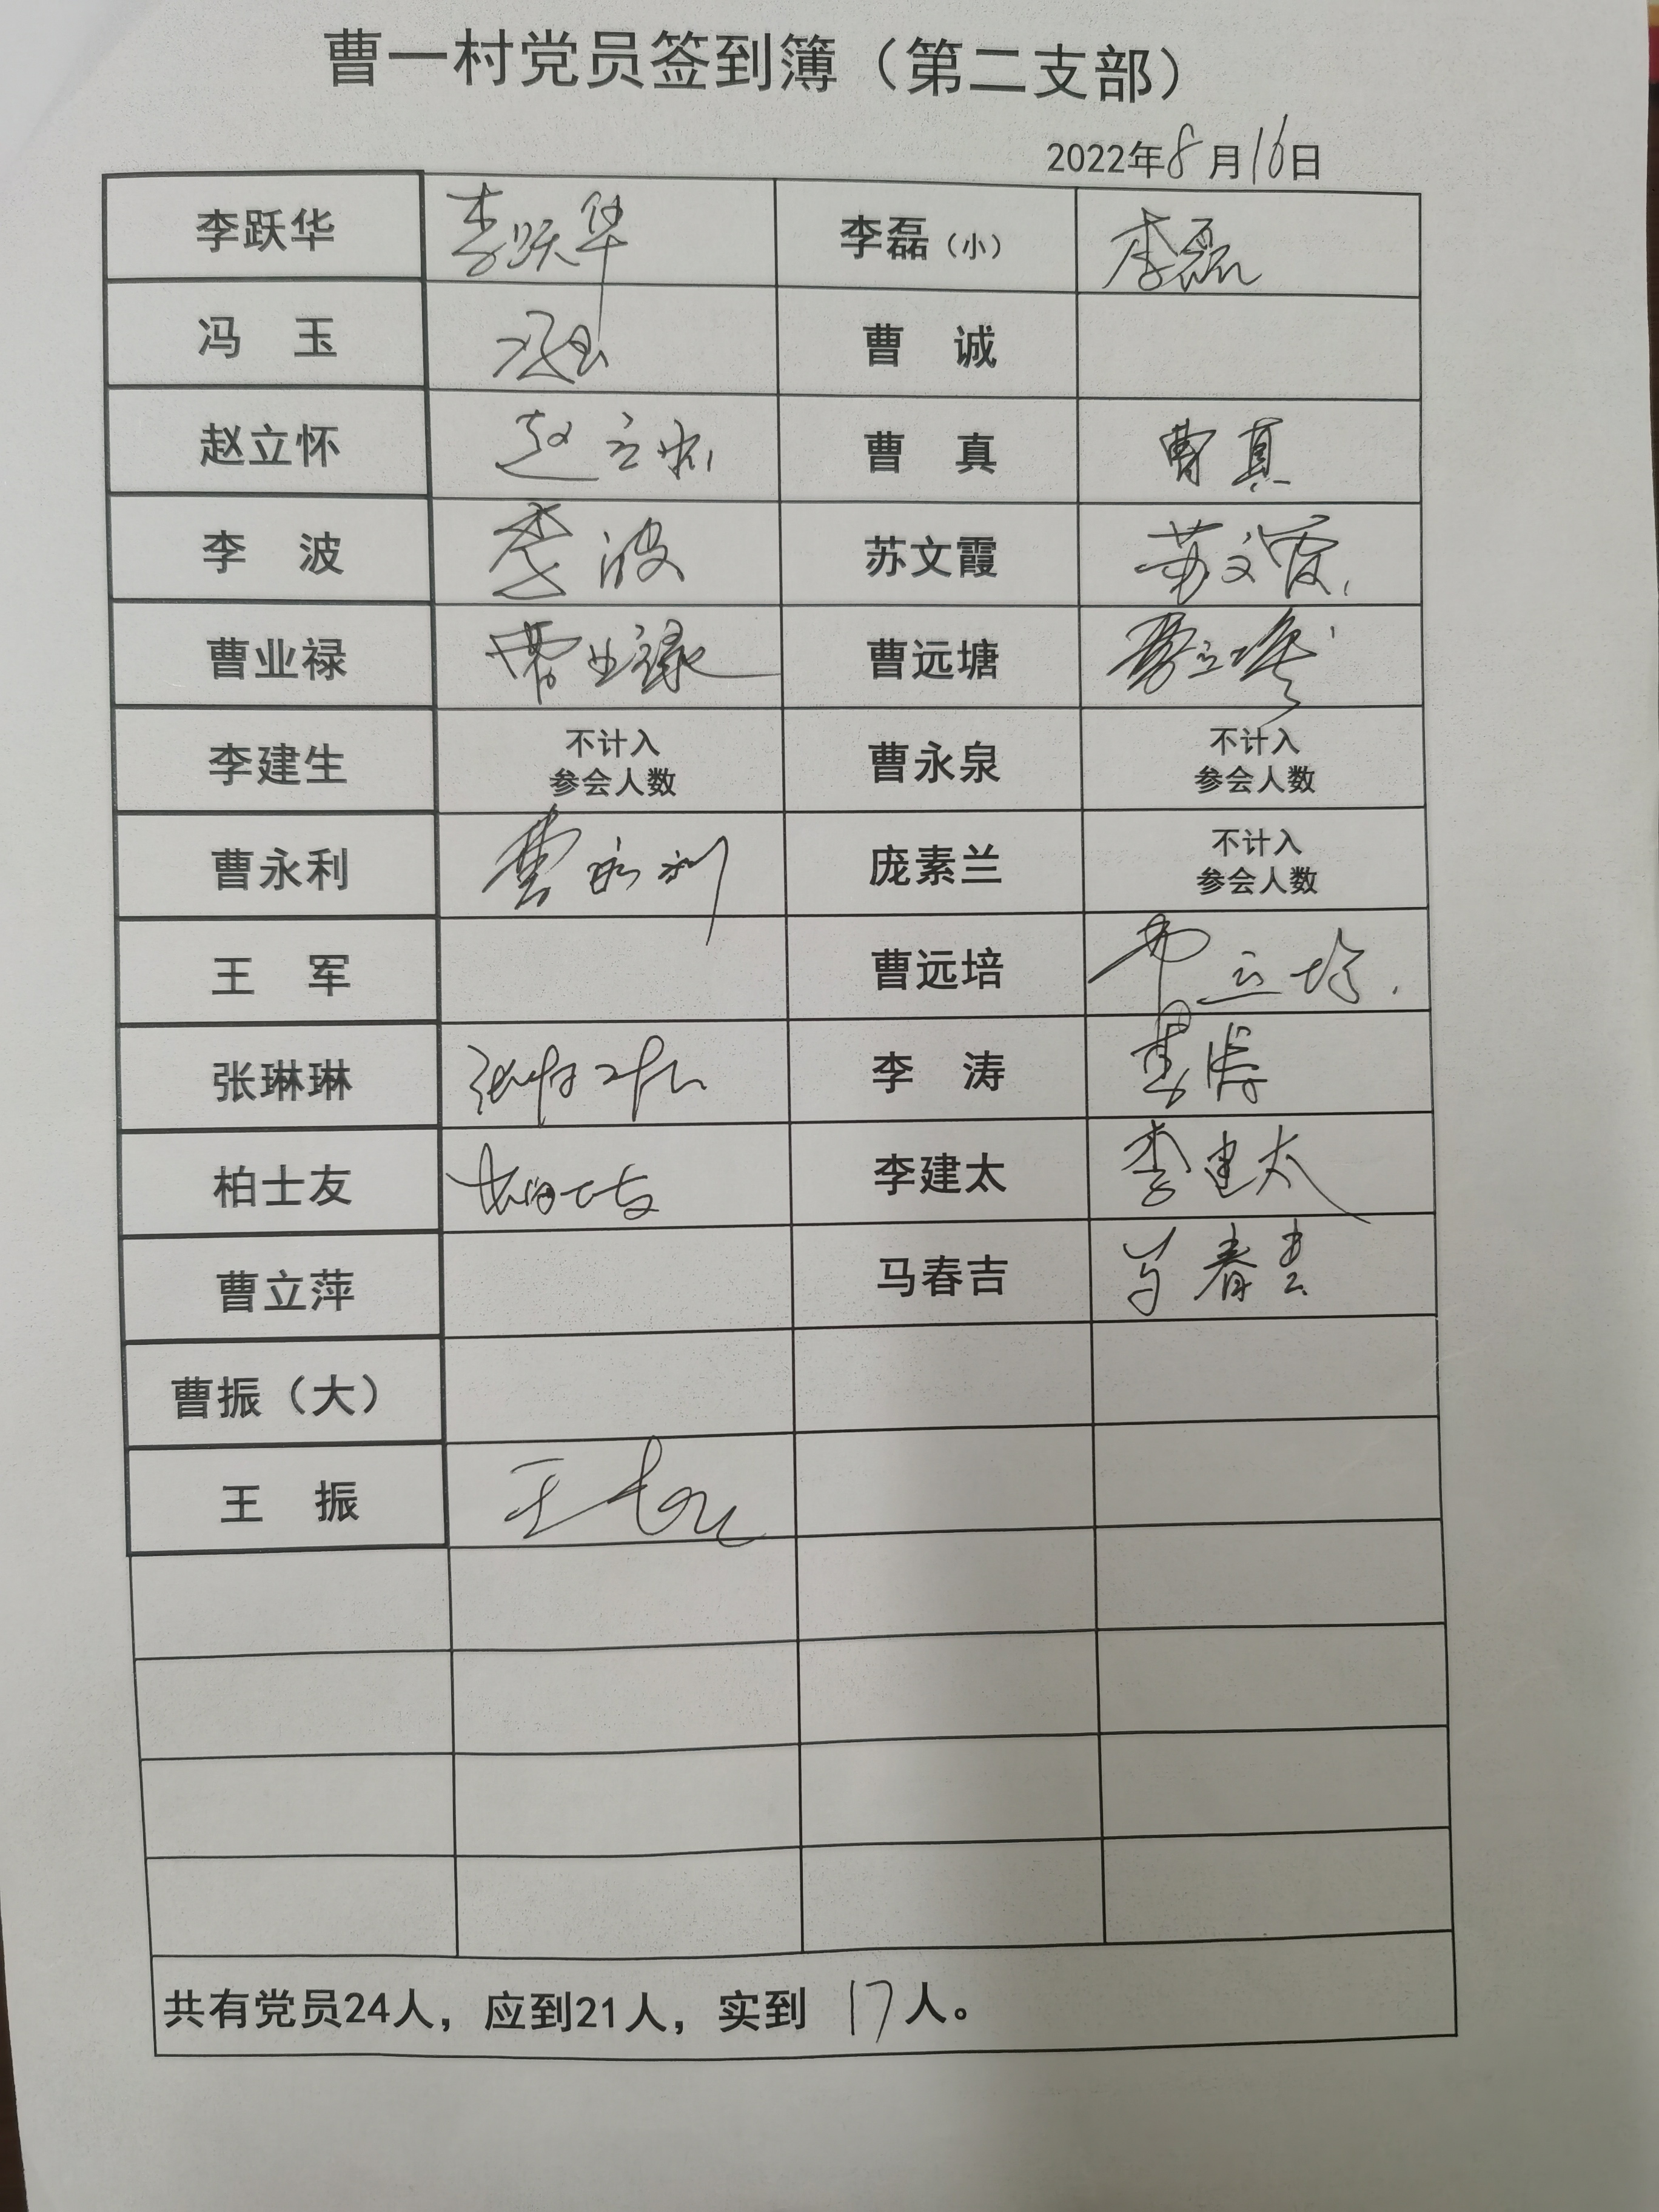 曹一村党员签到簿（第二支部）
2022年8月16日
李跃华 李跃华 李磊（小） 李磊
冯 玉 冯玉 曹 诚
赵立怀 赵立怀 曹 真 曹真
李 波 李波 苏文霞 苏文霞
曹业禄 曹业禄 曹远塘 曹远塘
李建生 不计入 曹永泉 不计入
参会人数 参会人数
曹永利 曹永利 庞素兰 不计入
参会人数
王 军 曹远培 曹远培
张琳琳 张琳琳 李 涛 李涛
柏士友 柏士友 李建太 李建太
曹立萍 马春吉 马春吉
曹振（大）
王 振 王振
共有党员24人，应到21人，实到 17人。